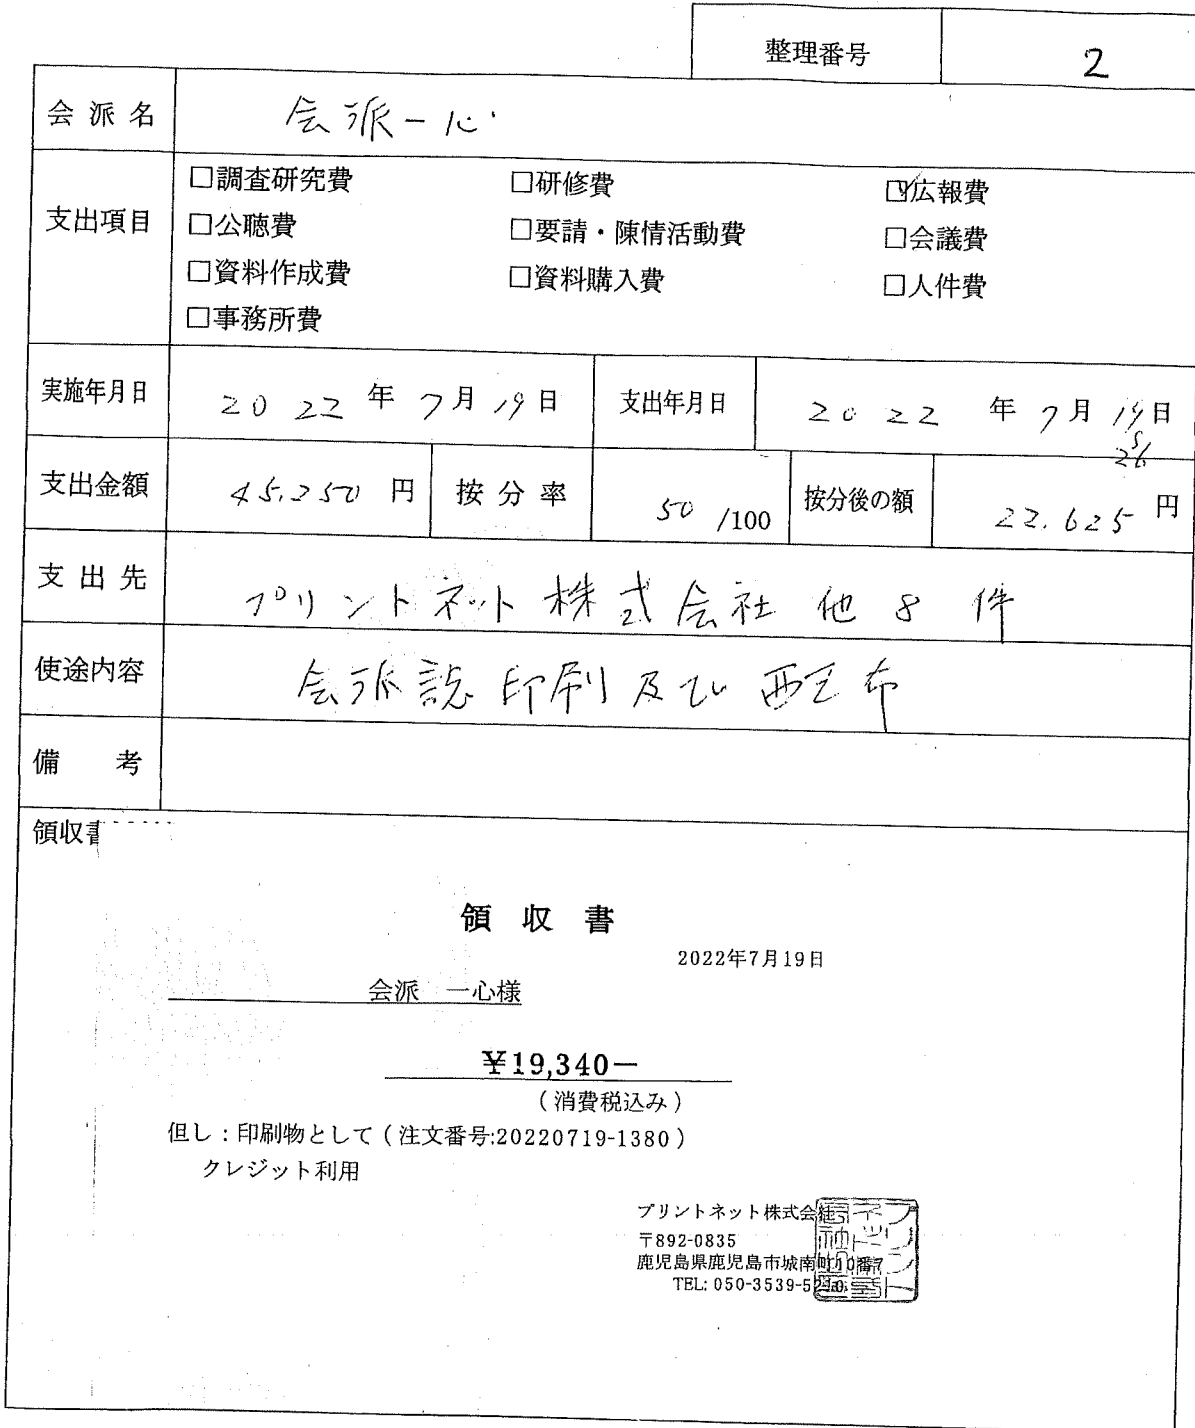 整理番号 2
会派名 会派一心
支出項目
□調査研究費 □研修費 ☑広報費
□公聴費 □要請・陳情活動費 □会議費
□資料作成費 □資料購入費 □人件費
□事務所費
実施年月日 2022年7月19日 支出年月日 2022年7月19日
26
支出金額 45,250円 按分率 50/100 按分後の額 22,625円
支出先 プリントネット株式会社 他8件
使途内容 会派誌印刷及び配布
備考
領収書
領収書
2022年7月19日
会派 一心様
¥19,340−
(消費税込み)
但し:印刷物として(注文番号:20220719-1380)
クレジット利用
プリントネット株式会社
〒892-0835
鹿児島県鹿児島市城南町10番7
TEL: 050-3539-5210